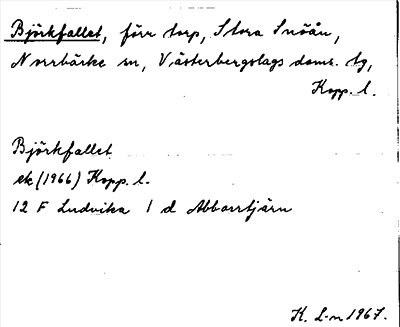 Björkfallet, förr torp, Stora Snöån,
Norrbärke sn, Västerbergslags doms. tg,
Kopp. l.
Björkfallet
ek (1966) Kopp. l.
12 F Ludvika 1 d Abborrtjärn
K. L-n 1967.